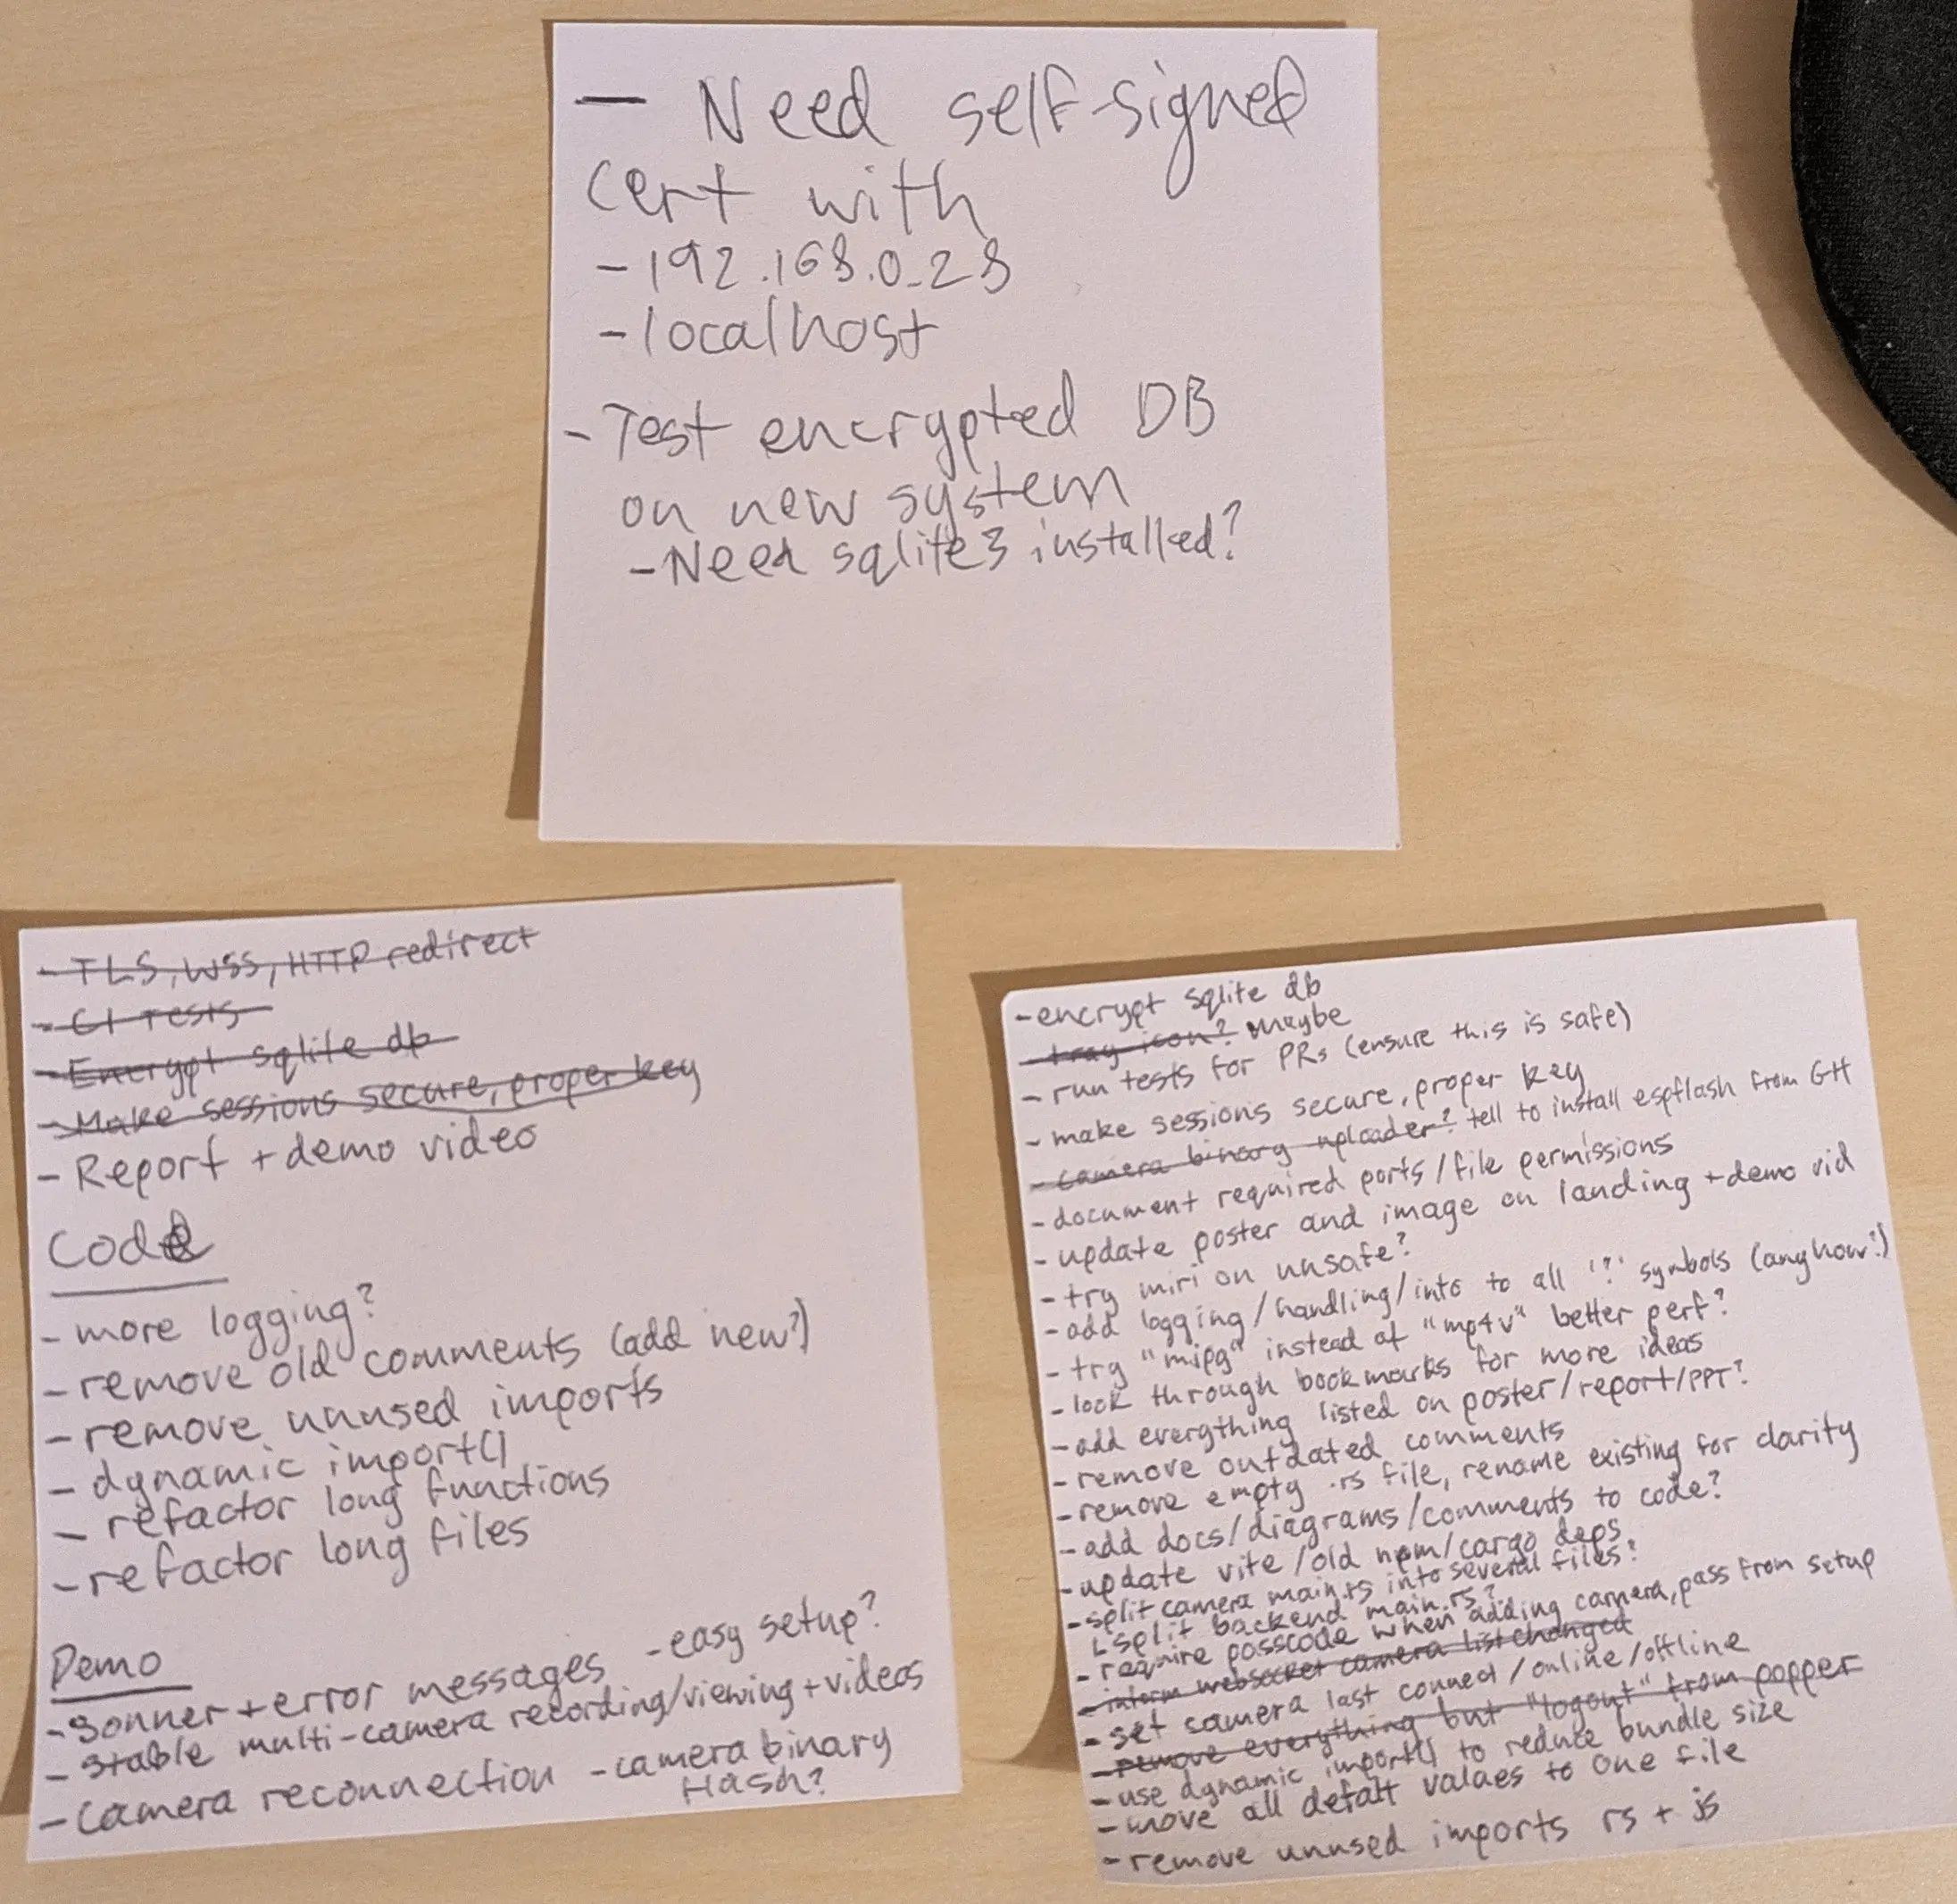 - Need self-signed
cert with
- 192.168.0.28
- localhost
- Test encrypted DB
on new system
- Need sqlite3 installed?
- TLS, WSS, HTTP redirect
- CI Tests
- Encrypt sqlite db
- Make sessions secure, proper key
- Report + demo video
Code
- more logging?
- remove old comments (add new?)
- remove unused imports
- dynamic import()
- refactor long functions
- refactor long files
Demo
- easy setup?
- Sonner + error messages
- Stable multi-camera recording/viewing + videos
- Camera reconnection - camera binary
Hash?
- encrypt sqlite db
- tray icon? Maybe
- run tests for PRs (ensure this is safe)
- make sessions secure, proper key
- camera binary uploader? tell to install espflash from GH
- document required ports/file permissions
- update poster and image on landing + demo vid
- try miri on unsafe?
- add logging/handling/into to all '?' symbols (anyhow?)
- try "mjpg" instead of "mp4v" better perf?
- look through bookmarks for more ideas
- add everything listed on poster/report/PPT?
- remove outdated comments
- remove empty .rs file, rename existing for clarity
- add docs/diagrams/comments to code?
- update vite/old npm/cargo deps
- split camera main.rs into several files?
split backend main.rs?
- require passcode when adding camera, pass from setup
- inform websocket camera list changed
- set camera last conned/online/offline
- remove everything but "logout" from popper
- use dynamic import() to reduce bundle size
- move all defalt values to one file
- remove unused imports rs + js